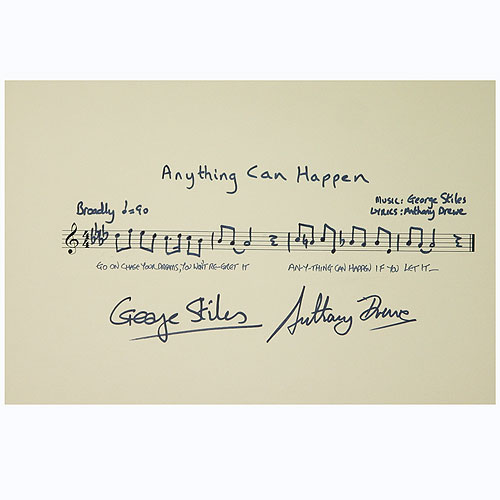 Anything Can Happen
MUSIC: George Stiles
LYRICS: Anthony Drewe
Broadly ♩=90
4
4
GO ON CHASE YOUR DREAMS, YOU WON'T RE-GRET IT AN-Y-THING CAN HAPPEN IF YOU LET IT—
George Stiles Anthony Drewe